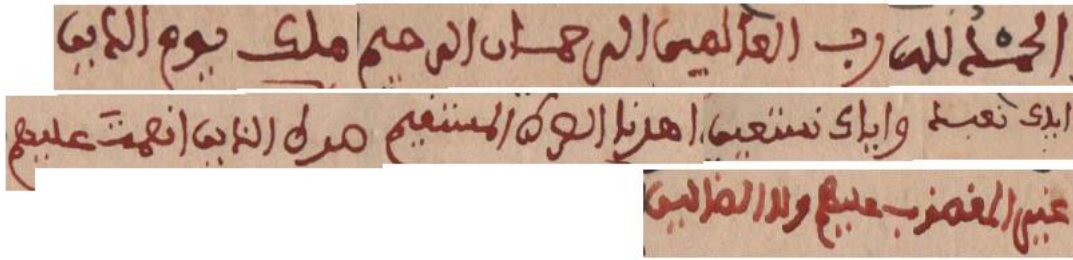 الحمد لله رب العالمين الرحمان الرحيم ملك يوم الدين
اياك نعبد واياك نستعين اهدنا الصرط المستقيم صرط الذين انعمت عليهم
غير المغضوب عليهم ولا الضالين